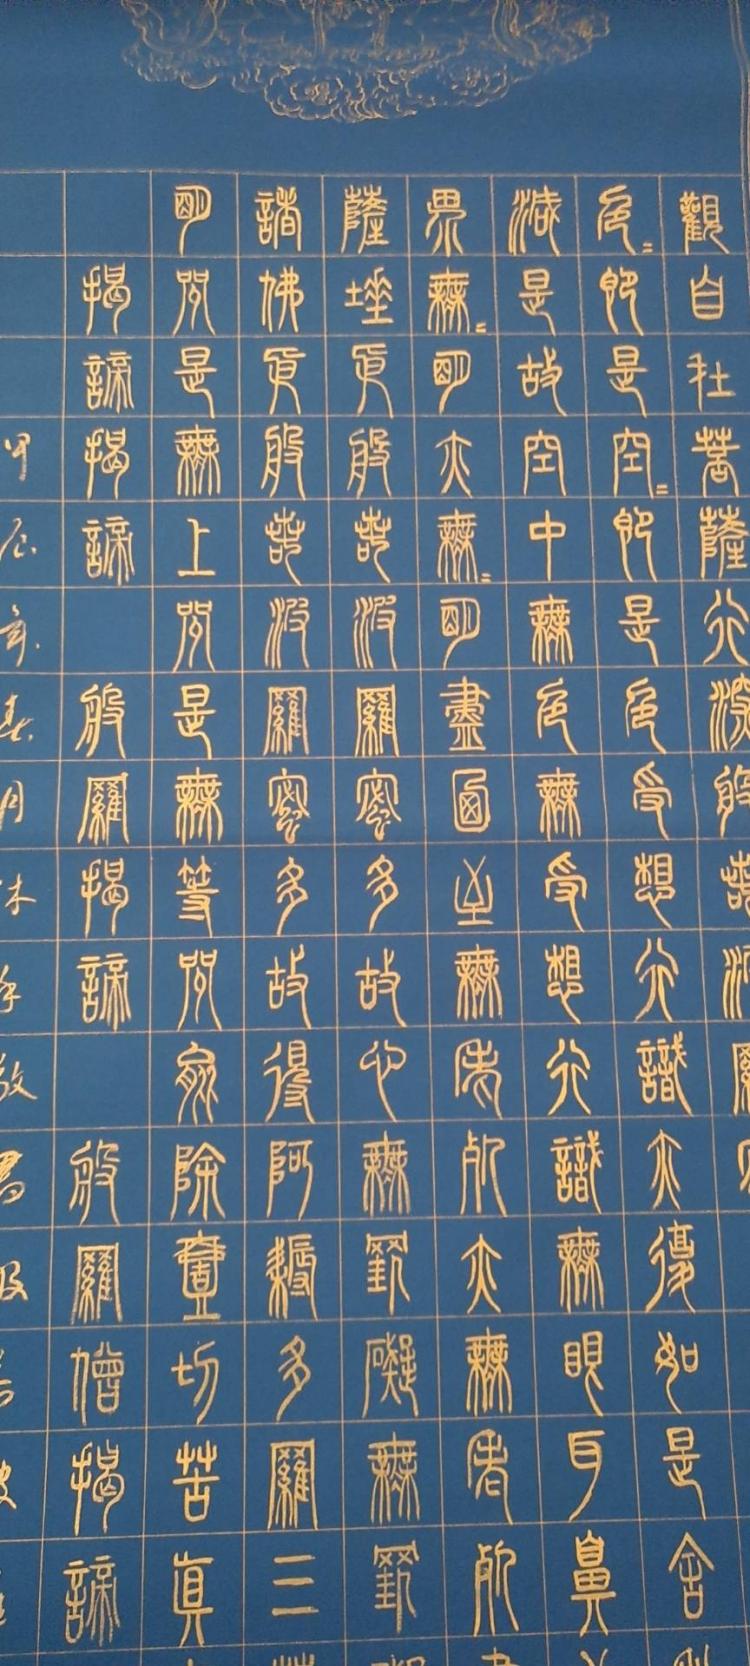 觀自在菩薩行深般若波羅
色=即是空=即是色受想行識亦復如是舍
滅是故空中無色無受想行識無眼耳鼻
界無=明亦無=明盡乃至無老死亦無老死
薩埵依般若波羅蜜多故心無罣礙無罣
諸佛依般若波羅蜜多故得阿耨多羅三
明咒是無上咒是無等咒能除壹切苦真
揭諦揭諦 般羅揭諦 般羅僧揭諦
甲辰年春月沐手敬書